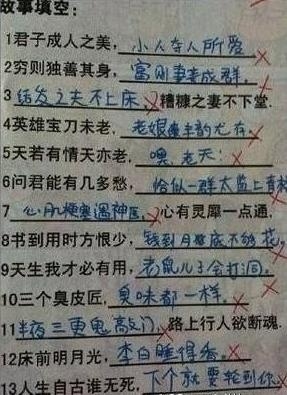 故事填空:
1君子成人之美, 小人夺人所爱
2穷则独善其身, 富则妻妾成群.
3 结发之夫不上床, 糟糠之妻不下堂.
4英雄宝刀未老, 老娘丰韵尤存
5天若有情天亦老, 噢,老天:
6问君能有几多愁, 恰似一群太监上青楼
7 心肌梗塞遇神医, 心有灵犀一点通,
8书到用时方恨少, 钱到月底不够花,
9天生我才必有用, 老鼠儿子会打洞,
10三个臭皮匠, 臭味都一样,
11半夜三更鬼敲门, 路上行人欲断魂.
12床前明月光, 李白睡得香,
13人生自古谁无死, 下个就要轮到你